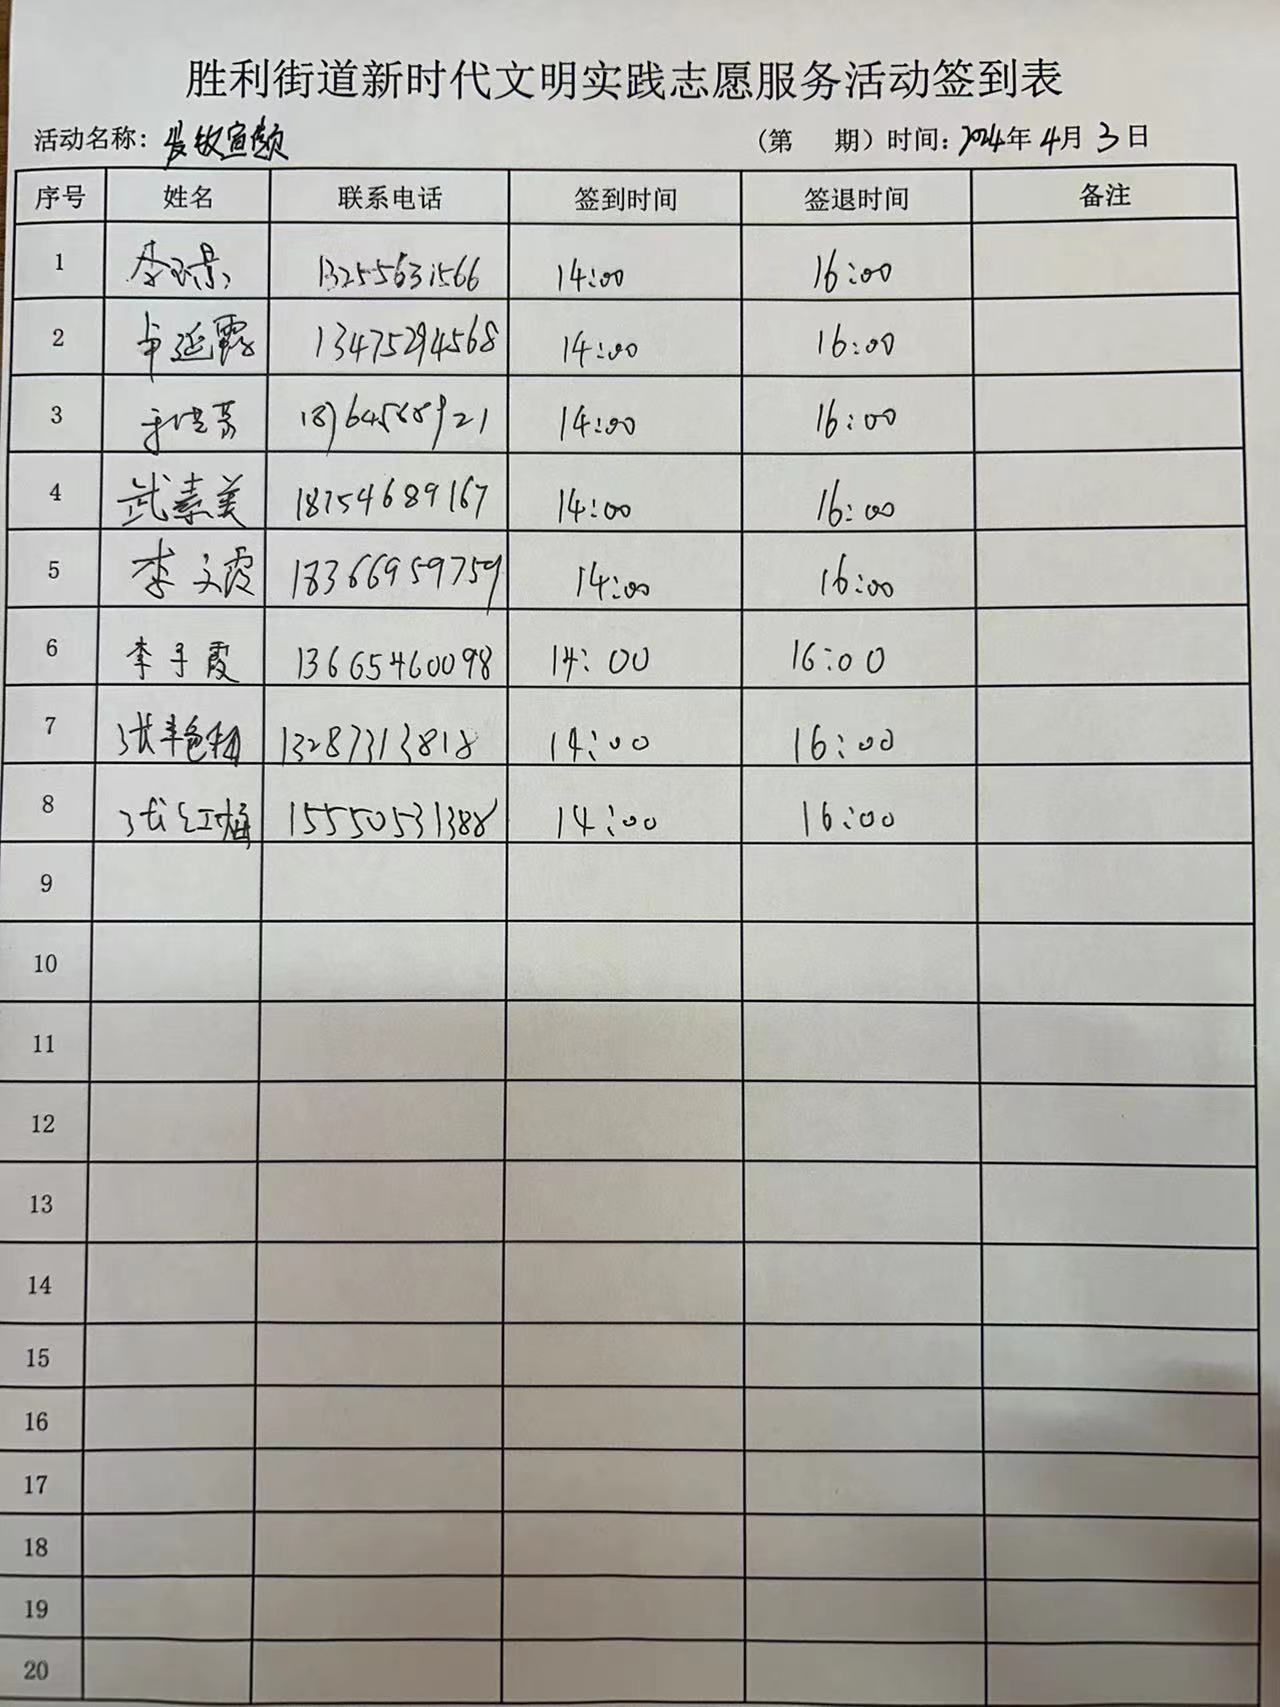 胜利街道新时代文明实践志愿服务活动签到表
活动名称： （第 期）时间：2024年4月3日
序号 姓名 联系电话 签到时间 签退时间 备注
1 李玉景 13255631566 14:00 16:00
2 延霞 13475294568 14:00 16:00
3 14:00 16:00
4 武素美 18754689167 14:00 16:00
5 李文霞 18366959759 14:00 16:00
6 李于霞 13665460098 14:00 16:00
7 张 13287313818 14:00 16:00
8 张红梅 15550531388 14:00 16:00
9
10
11
12
13
14
15
16
17
18
19
20